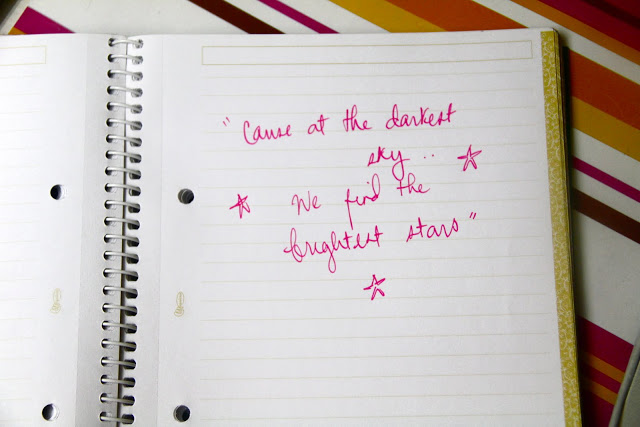 "Cause at the darkest
sky..
We find the
brightest stars"